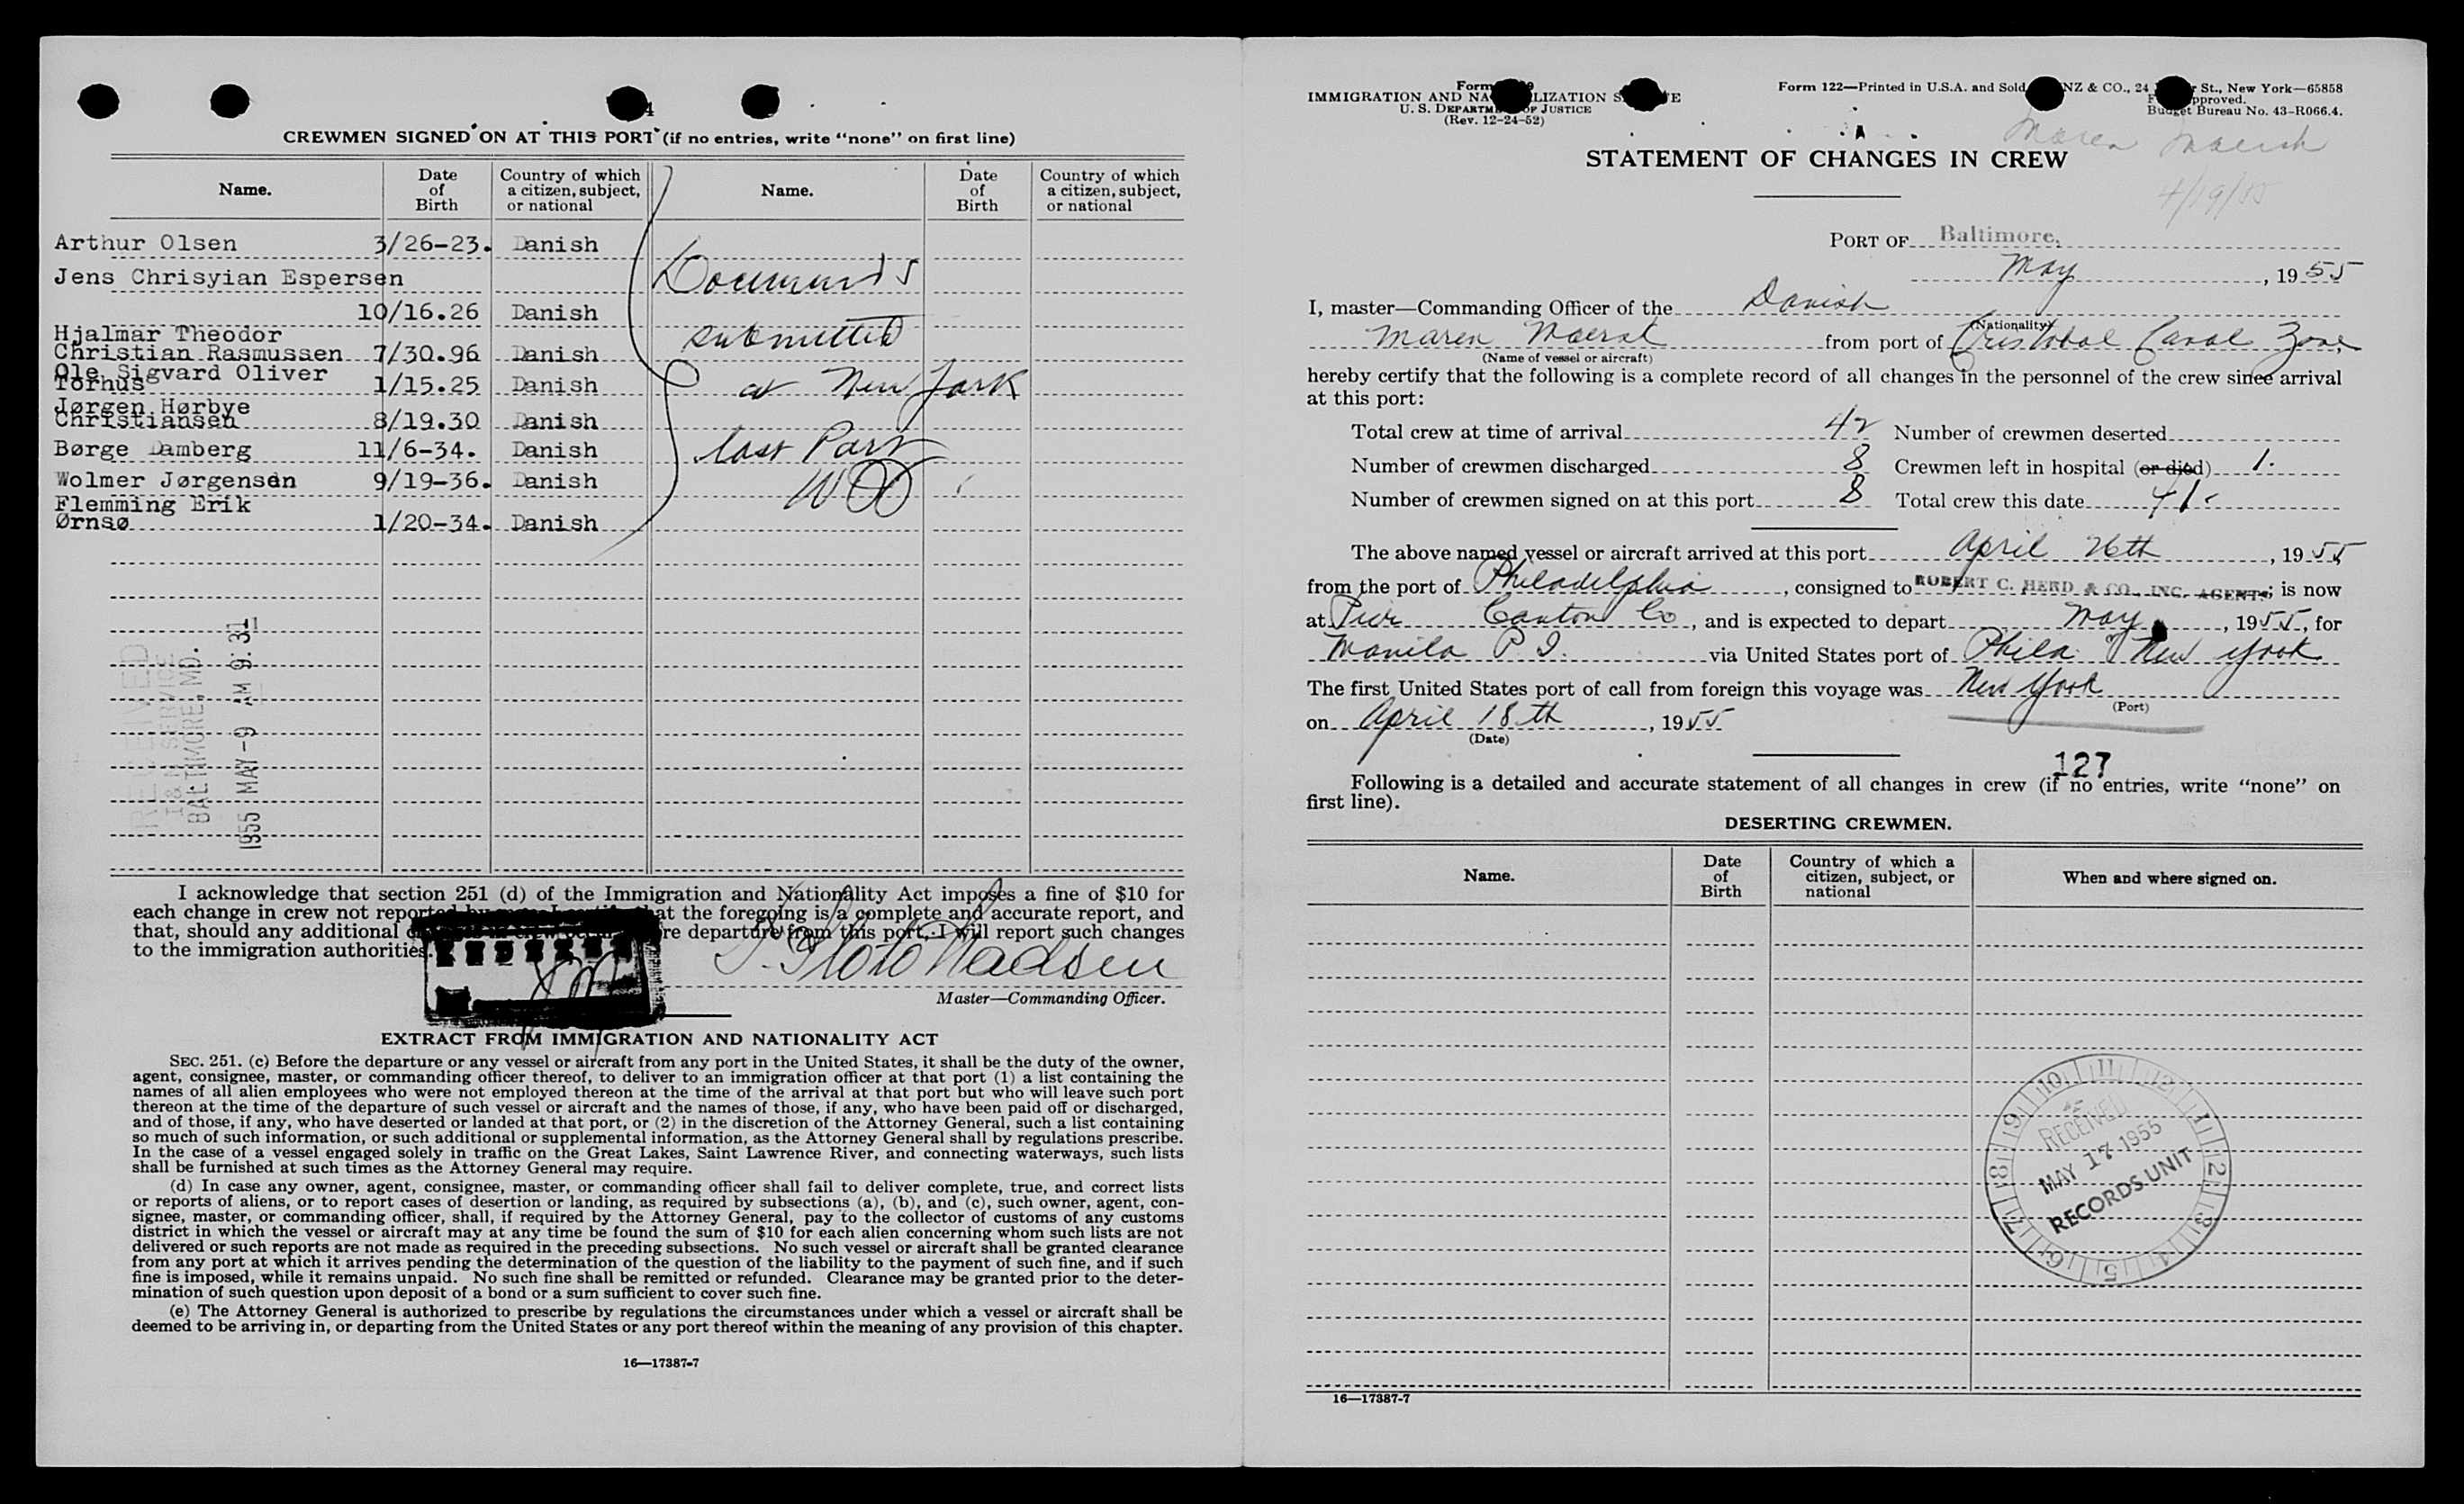 CREWMEN SIGNED ON AT THIS PORT (if no entries, write "none" on first line)
Name. Date of Birth Country of which a citizen, subject, or national Name. Date of Birth Country of which a citizen, subject, or national
Arthur Olsen 3/26-23. Danish
Jens Chrisyian Espersen
10/16.26 Danish
Hjalmar Theodor
Christian Rasmussen 7/30.96 Danish
Ole Sigvard Oliver
Torhus 1/15.25 Danish
Jørgen Hørbye
Christiansen 8/19.30 Danish
Børge Damberg 11/6-34. Danish
Wolmer Jørgensen 9/19-36. Danish
Flemming Erik
Ørnsø 1/20-34. Danish
Documents
submitted
at New York
last Port
RECEIVED
I & N SERVICE
BALTIMORE, MD.
1955 MAY -9 AM 9:31
I acknowledge that section 251 (d) of the Immigration and Nationality Act imposes a fine of $10 for
each change in crew not reported at the foregoing is a complete and accurate report, and
that, should any additional re departure from this port, I will report such changes
to the immigration authorities.
Master—Commanding Officer.
EXTRACT FROM IMMIGRATION AND NATIONALITY ACT
SEC. 251. (c) Before the departure or any vessel or aircraft from any port in the United States, it shall be the duty of the owner,
agent, consignee, master, or commanding officer thereof, to deliver to an immigration officer at that port (1) a list containing the
names of all alien employees who were not employed thereon at the time of the arrival at that port but who will leave such port
thereon at the time of the departure of such vessel or aircraft and the names of those, if any, who have been paid off or discharged,
and of those, if any, who have deserted or landed at that port, or (2) in the discretion of the Attorney General, such a list containing
so much of such information, or such additional or supplemental information, as the Attorney General shall by regulations prescribe.
In the case of a vessel engaged solely in traffic on the Great Lakes, Saint Lawrence River, and connecting waterways, such lists
shall be furnished at such times as the Attorney General may require.
(d) In case any owner, agent, consignee, master, or commanding officer shall fail to deliver complete, true, and correct lists
or reports of aliens, or to report cases of desertion or landing, as required by subsections (a), (b), and (c), such owner, agent, con-
signee, master, or commanding officer, shall, if required by the Attorney General, pay to the collector of customs of any customs
district in which the vessel or aircraft may at any time be found the sum of $10 for each alien concerning whom such lists are not
delivered or such reports are not made as required in the preceding subsections. No such vessel or aircraft shall be granted clearance
from any port at which it arrives pending the determination of the question of the liability to the payment of such fine, and if such
fine is imposed, while it remains unpaid. No such fine shall be remitted or refunded. Clearance may be granted prior to the deter-
mination of such question upon deposit of a bond or a sum sufficient to cover such fine.
(e) The Attorney General is authorized to prescribe by regulations the circumstances under which a vessel or aircraft shall be
deemed to be arriving in, or departing from the United States or any port thereof within the meaning of any provision of this chapter.
16—17387-7
Form
IMMIGRATION AND NA LIZATION S E
U. S. DEPARTMENT OF JUSTICE
(Rev. 12-24-52)
Form 122—Printed in U.S.A. and Sold NZ & CO., 24 St., New York—65858
pproved.
Budget Bureau No. 43-R066.4.
Maren Maersk
4/19/55
STATEMENT OF CHANGES IN CREW
PORT OF Baltimore,
May, 1955
I, master—Commanding Officer of the Danish
(Nationality)
Maren Maersk from port of Cristobal Canal Zone
(Name of vessel or aircraft)
hereby certify that the following is a complete record of all changes in the personnel of the crew since arrival
at this port:
Total crew at time of arrival 42 Number of crewmen deserted
Number of crewmen discharged 8 Crewmen left in hospital (or died) 1.
Number of crewmen signed on at this port 8 Total crew this date 41.
The above named vessel or aircraft arrived at this port April 26th, 1955
from the port of Philadelphia, consigned to ROBERT C. HERD & CO., INC. AGENTS; is now
at Pier Canton Co, and is expected to depart May, 1955, for
Manila P. I. via United States port of Phila. & New York
The first United States port of call from foreign this voyage was New York
(Port)
on April 18th, 1955
(Date)
127
Following is a detailed and accurate statement of all changes in crew (if no entries, write "none" on
first line).
DESERTING CREWMEN.
Name. Date of Birth Country of which a citizen, subject, or national When and where signed on.
RECEIVED
MAY 17 1955
RECORDS UNIT
16—17387-7